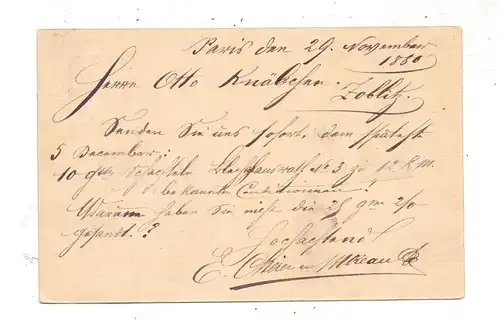 Paris den 29. November
1880
Herrn Otto Knäbchen.
Zöblitz.
Senden Sie uns sofort, dem späteste
5 December:
10 Schachteln No 3 zu 12 R.M.
bekannte Conditionnen?
Warum haben Sie nicht die 25 gm 2/0
gesandt.?
Hochachtend
E.